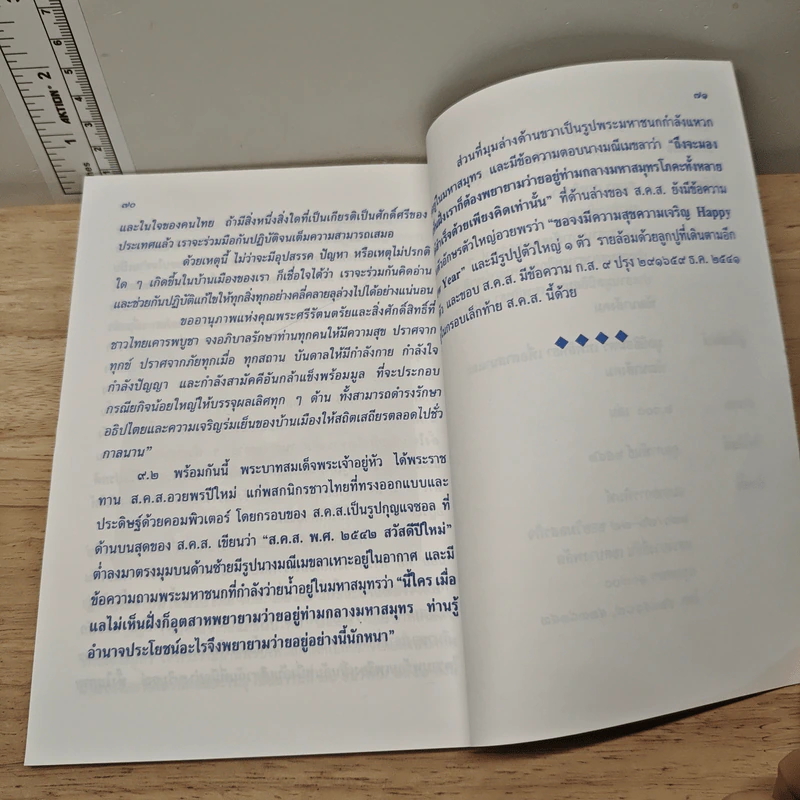 ๗๐
และในใจของคนไทย ถ้ามีสิ่งหนึ่งสิ่งใดที่เป็นเกียรติเป็นศักดิ์ศรีของ
ประเทศแล้ว เราจะร่วมมือกันปฏิบัติจนเต็มความสามารถเสมอ
ด้วยเหตุนี้ ไม่ว่าจะมีอุปสรรค ปัญหา หรือเหตุไม่ปรกติ
ใด ๆ เกิดขึ้นในบ้านเมืองของเรา ก็เชื่อใจได้ว่า เราจะร่วมกันคิดอ่าน
และช่วยกันปฏิบัติแก้ไขให้ทุกสิ่งทุกอย่างคลี่คลายลุล่วงไปได้อย่างแน่นอน
ขออานุภาพแห่งคุณพระศรีรัตนตรัยและสิ่งศักดิ์สิทธิ์ที่
ชาวไทยเคารพบูชา จงอภิบาลรักษาท่านทุกคนให้มีความสุข ปราศจาก
ทุกข์ ปราศจากภัยทุกเมื่อ ทุกสถาน บันดาลให้มีกำลังกาย กำลังใจ
กำลังปัญญา และกำลังสามัคคีอันกล้าแข็งพร้อมมูล ที่จะประกอบ
กรณียกิจน้อยใหญ่ให้บรรจุผลเลิศทุก ๆ ด้าน ทั้งสามารถดำรงรักษา
อธิปไตยและความเจริญร่มเย็นของบ้านเมืองให้สถิตเสถียรตลอดไปชั่ว
กาลนาน”
๙.๒ พร้อมกันนี้ พระบาทสมเด็จพระเจ้าอยู่หัว ได้พระราช
ทาน ส.ค.ส.อวยพรปีใหม่ แก่พสกนิกรชาวไทยที่ทรงออกแบบและ
ประดิษฐ์ด้วยคอมพิวเตอร์ โดยกรอบของ ส.ค.ส.เป็นรูปกุญแจซอล ที่
ด้านบนสุดของ ส.ค.ส. เขียนว่า “ส.ค.ส. พ.ศ. ๒๕๔๒ สวัสดีปีใหม่”
ต่ำลงมาตรงมุมบนด้านซ้ายมีรูปนางมณีเมขลาเหาะอยู่ในอากาศ และมี
ข้อความถามพระมหาชนกที่กำลังว่ายน้ำอยู่ในมหาสมุทรว่า “นี้ใคร เมื่อ
แลไม่เห็นฝั่งก็อุตสาหพยายามว่ายอยู่ท่ามกลางมหาสมุทร ท่านรู้
อำนาจประโยชน์อะไรจึงพยายามว่ายอยู่อย่างนี้นักหนา”
๗๑
ส่วนที่มุมล่างด้านขวาเป็นรูปพระมหาชนกกำลังแหวก
ในมหาสมุทร และมีข้อความตอบนางมณีเมขลาว่า “ถึงจะมอง
เราก็ต้องพยายามว่ายอยู่ท่ามกลางมหาสมุทรโภคะทั้งหลาย
สำเร็จด้วยเพียงคิดเท่านั้น” ที่ด้านล่างของ ส.ค.ส. ยังมีข้อความ
อักษรตัวใหญ่อวยพรว่า “ขอจงมีความสุขความเจริญ Happy
Year” และมีรูปปูตัวใหญ่ ๑ ตัว รายล้อมด้วยลูกปูที่เดินตามอีก
และขอบ ส.ค.ส. มีข้อความ ก.ส. ๙ ปรุง ๒๙๑๖๕๙ ธ.ค. ๒๕๔๑
ในกรอบเล็กท้าย ส.ค.ส. นี้ด้วย
AKTION